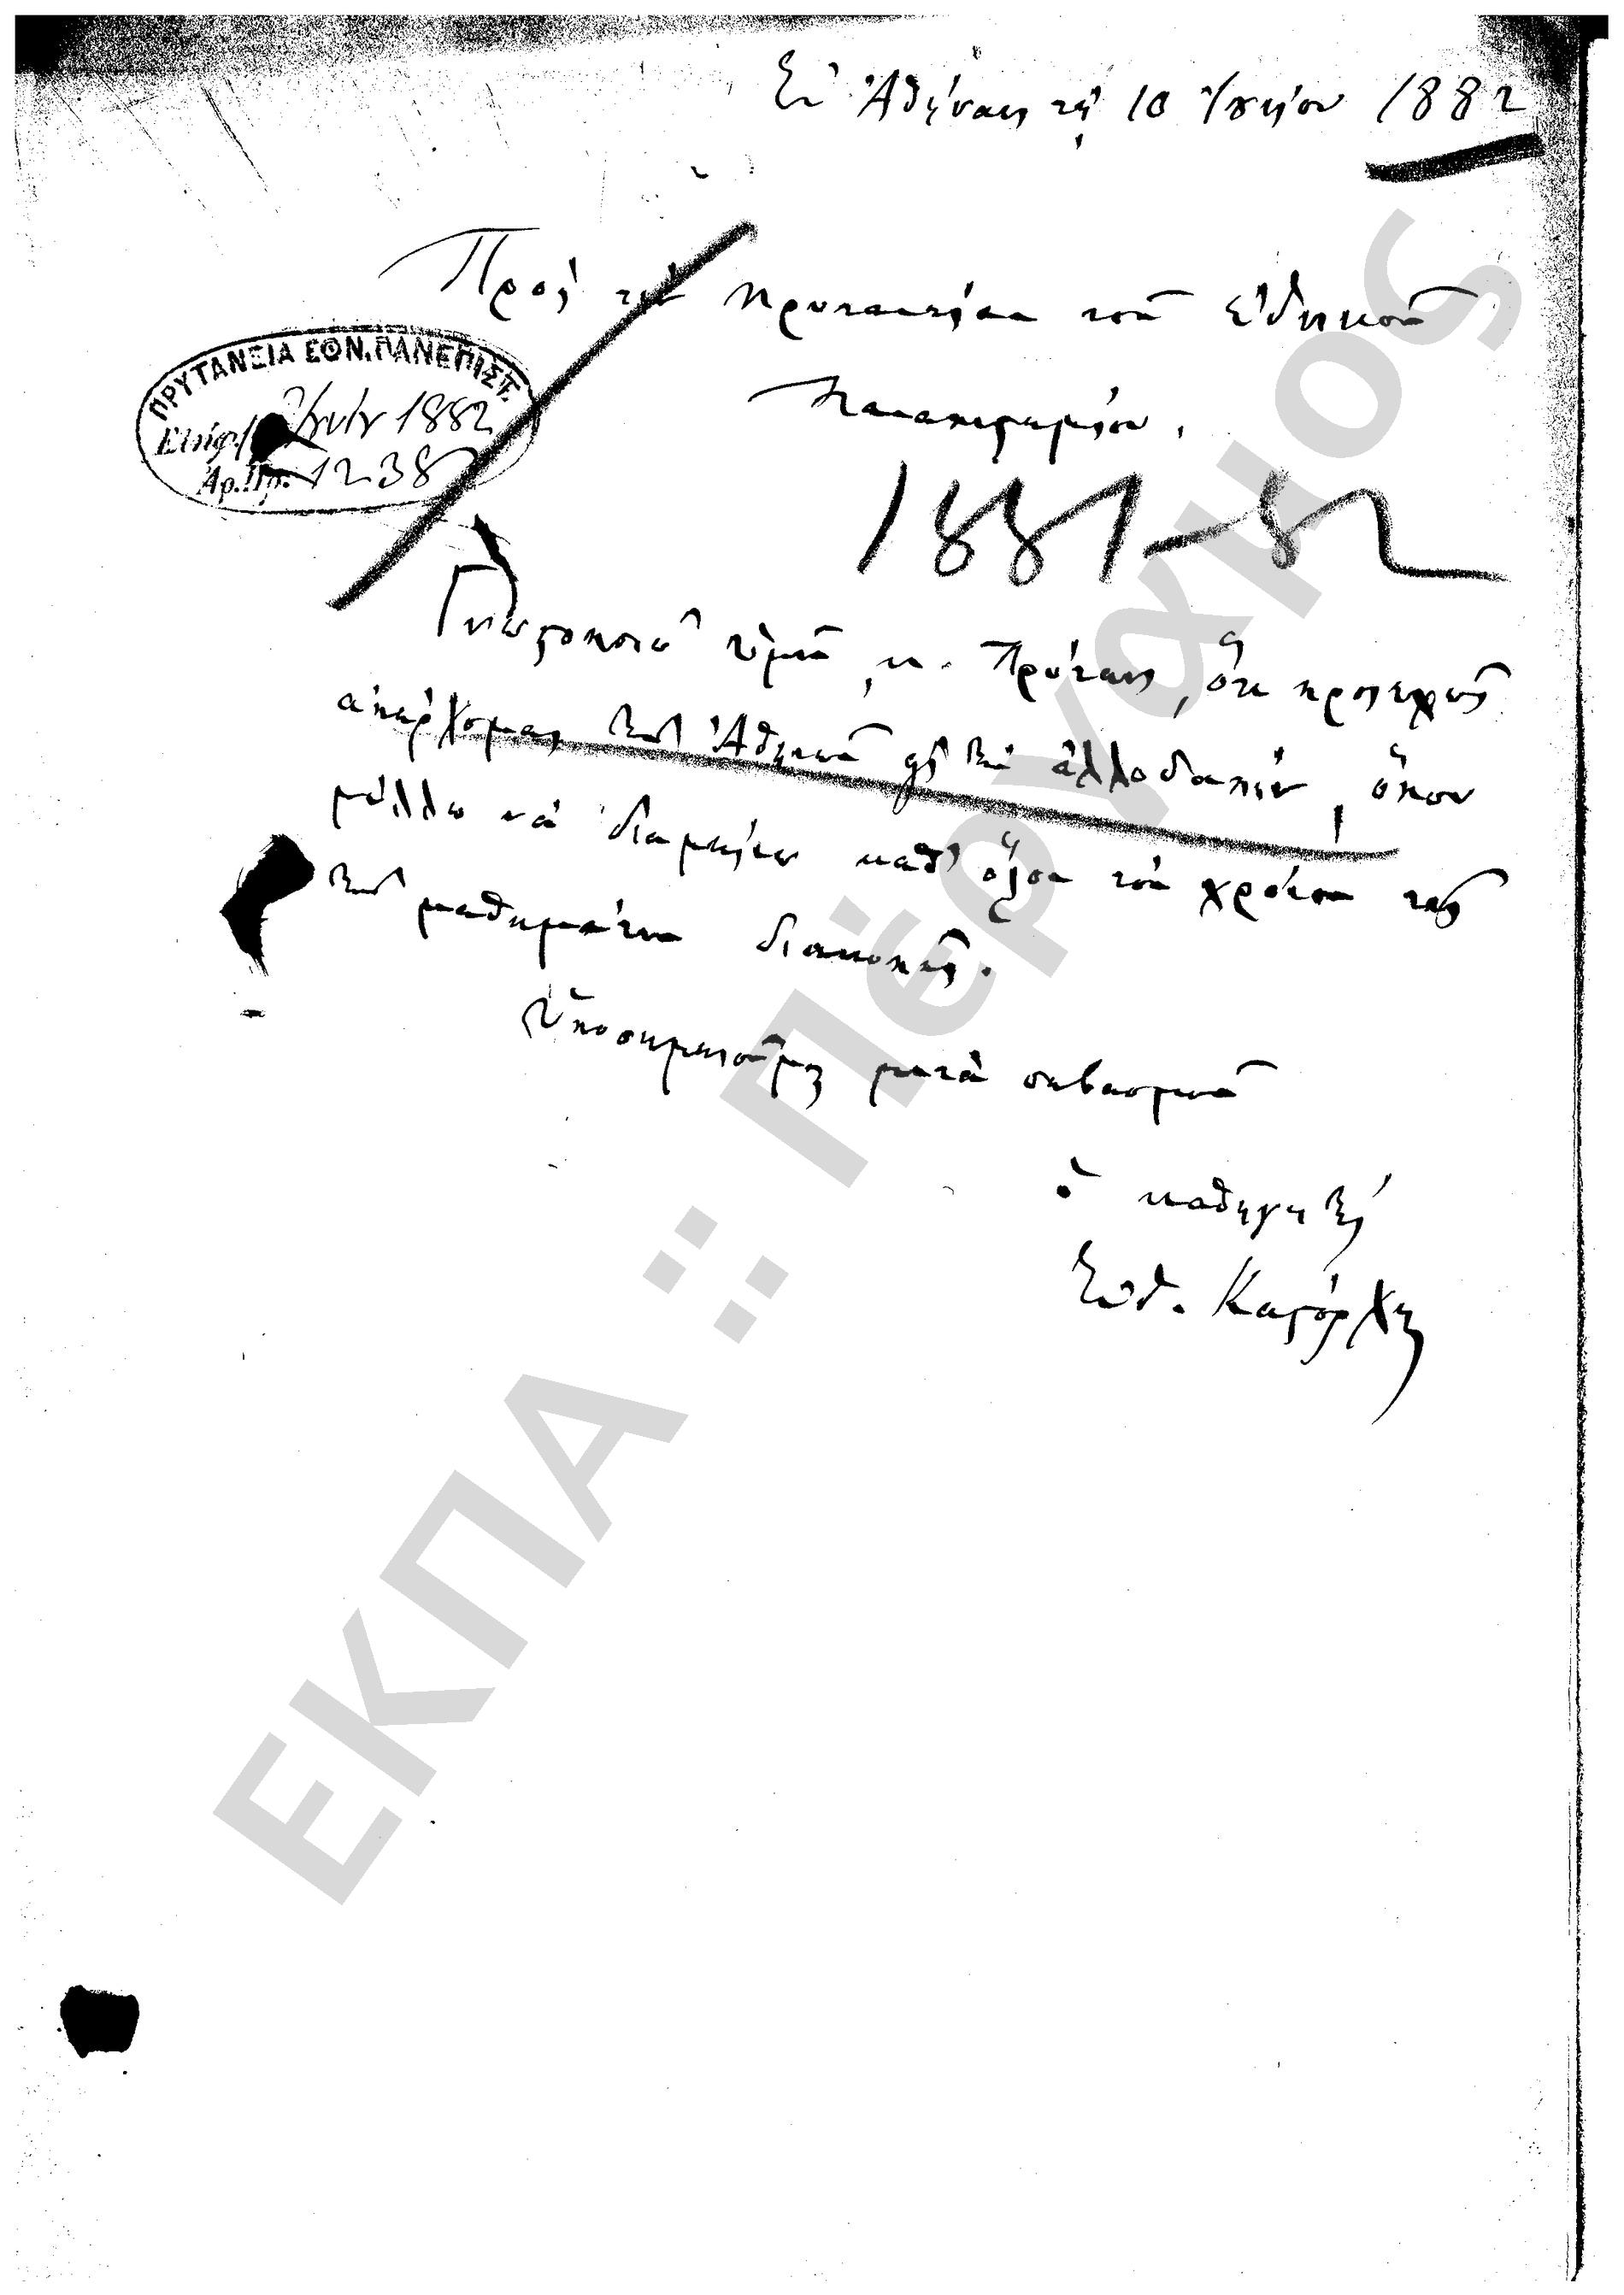 Ἐν Ἀθήναις τῇ 10 Ἰουνίου 1882
Πρὸς τὴν Πρυτανείαν τοῦ Ἐθνικοῦ
Πανεπιστημίου.
ΠΡΥΤΑΝΕΙΑ ΕΘΝ. ΠΑΝΕΠΙΣΤ.
1882
Ἀρ. Πρ. 1238
1881-82
Γνωστοποιῶ ὑμῖν, κ. Πρύτανι, ὅτι προσεχῶς
ἀπέρχομαι τῶν Ἀθηνῶν εἰς τὴν ἀλλοδαπήν, ὅπου
μέλλω νὰ διαμείνω καθ' ὅλον τὸν χρόνον τῆς
τῶν μαθημάτων διακοπῆς.
Ὑποσημειοῦμαι μετὰ σεβασμοῦ
ὁ καθηγητὴς
Εὐθ. Καστόρχης
ΕΚΠΑ :: Πέργαμος